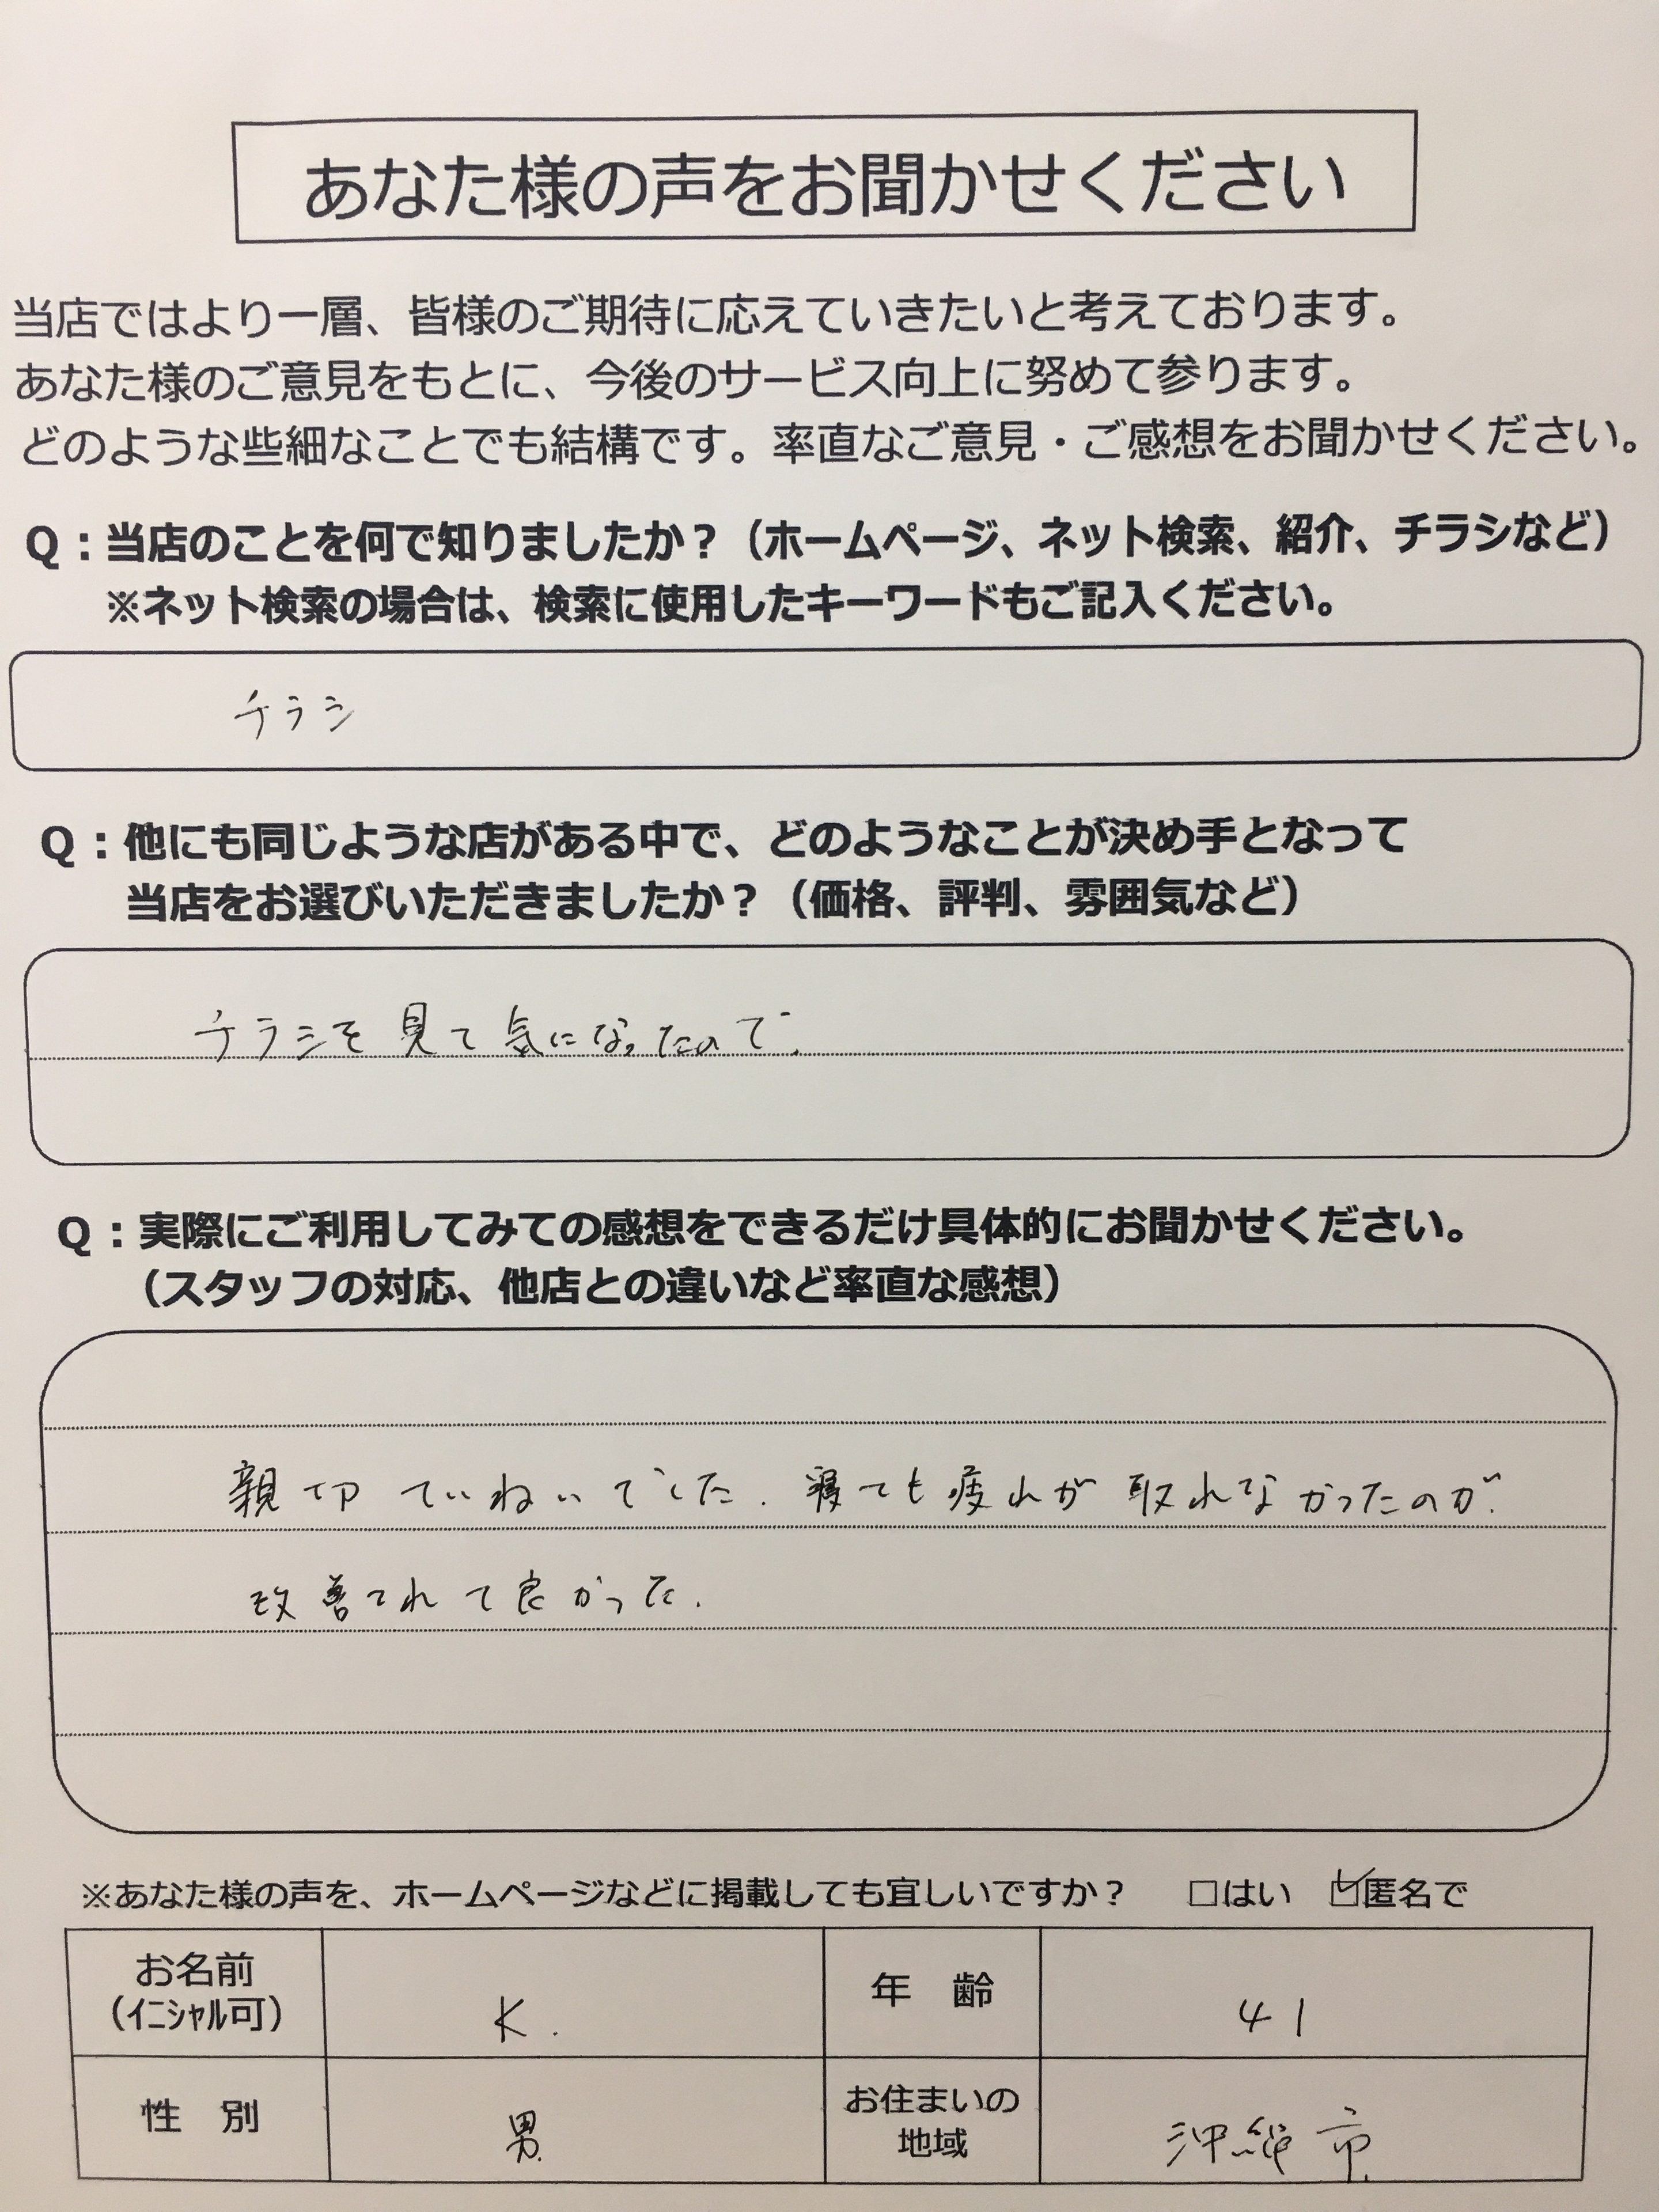 あなた様の声をお聞かせください
当店ではより一層、皆様のご期待に応えていきたいと考えております。
あなた様のご意見をもとに、今後のサービス向上に努めて参ります。
どのような些細なことでも結構です。率直なご意見・ご感想をお聞かせください。
Q：当店のことを何で知りましたか？（ホームページ、ネット検索、紹介、チラシなど）
※ネット検索の場合は、検索に使用したキーワードもご記入ください。
チラシ
Q：他にも同じような店がある中で、どのようなことが決め手となって
当店をお選びいただきましたか？（価格、評判、雰囲気など）
チラシを見て気になったので.
Q：実際にご利用してみての感想をできるだけ具体的にお聞かせください。
（スタッフの対応、他店との違いなど率直な感想）
親切ていねいでした. 寝ても疲れが取れなかったのが.
改善されて良かった.
※あなた様の声を、ホームページなどに掲載しても宜しいですか？ □はい ☑匿名で
お名前 K. 年 齢 41
（ｲﾆｼｬﾙ可）
性 別 男. お住まいの 沖縄市
地域